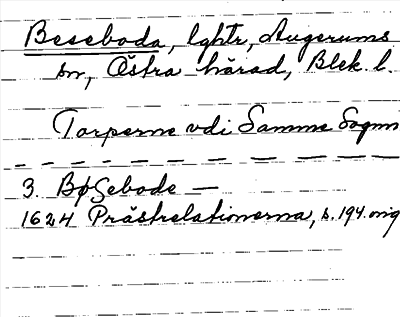 Beseboda, lghtr, Augerums
sn, Östra härad, Blek. l.
Torperne vdi Samme Sognn
3. Bøsebode —
1624 Prästrelationerna, s. 194. orig